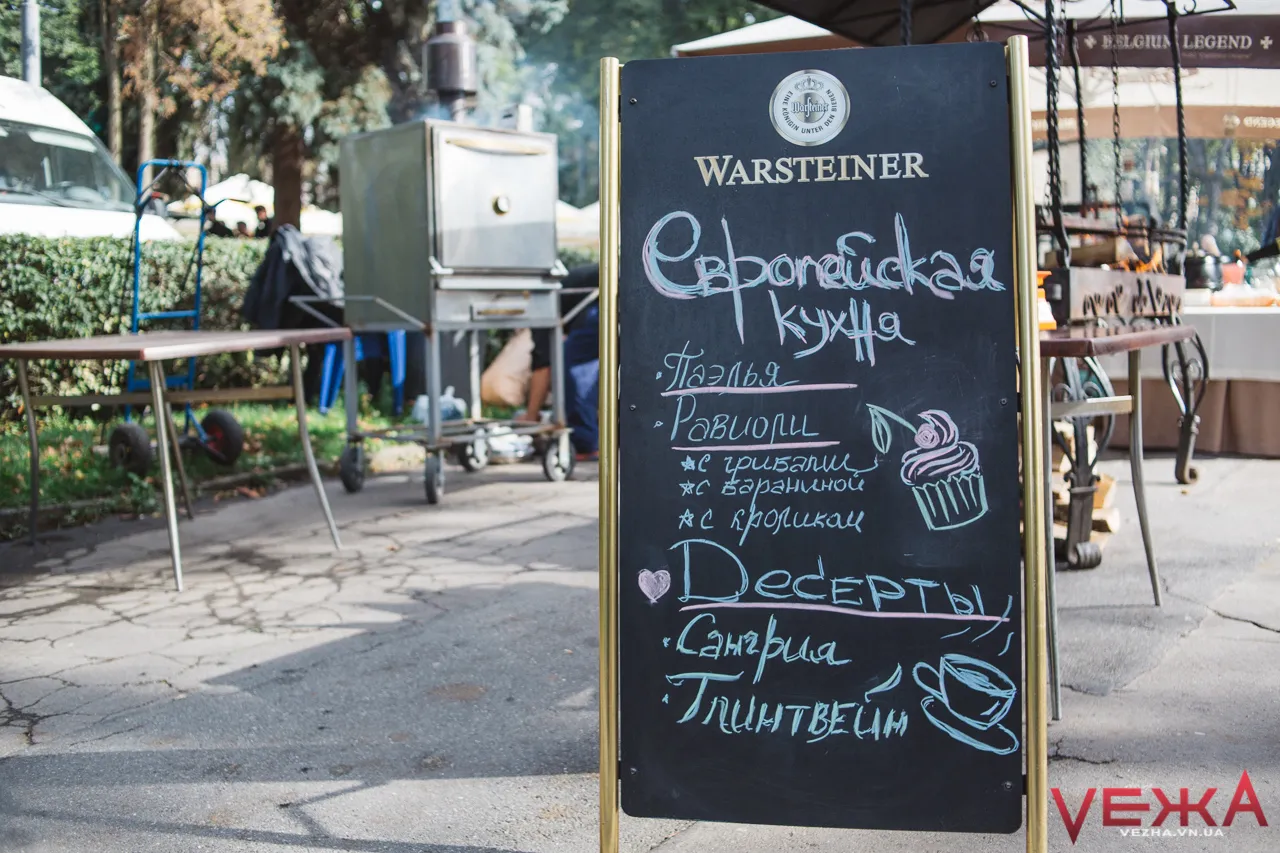 BELGIUM LEGEND
Warsteiner
EINE KÖNIGIN UNTER DEN BIEREN
WARSTEINER
Европейская
кухня
Паэлья
Равиоли
с грибами
с бараниной
с кроликом
Десерты
Сангрия
Глинтвейн
VEЖА
VEZHA.VN.UA